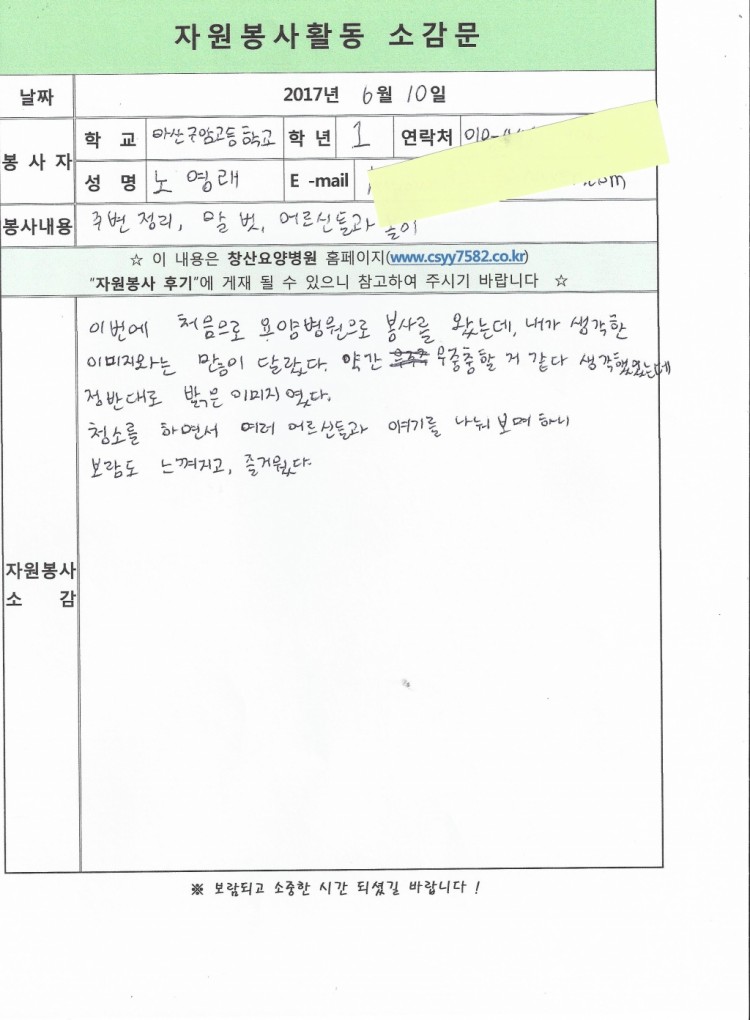 자원봉사활동 소감문
날짜 2017년 6월 10일
봉사자 학 교 마산구암고등학교 학 년 1 연락처 010-
성 명 노영래 E -mail
봉사내용 주변 정리, 말 벗, 어르신들과 놀이
☆ 이 내용은 창산요양병원 홈페이지(www.csyy7582.co.kr)
"자원봉사 후기"에 게재 될 수 있으니 참고하여 주시기 바랍니다 ☆
이번에 처음으로 요양병원으로 봉사를 왔는데, 내가 생각한
이미지와는 많이 달랐다. 약간 우중충할 거 같다 생각했었는데
정반대로 밝은 이미지였다.
청소를 하면서 여러 어르신들과 얘기를 나눠보며 하니
보람도 느껴지고, 즐거웠다.
자원봉사
소 감
※ 보람되고 소중한 시간 되셨길 바랍니다 !